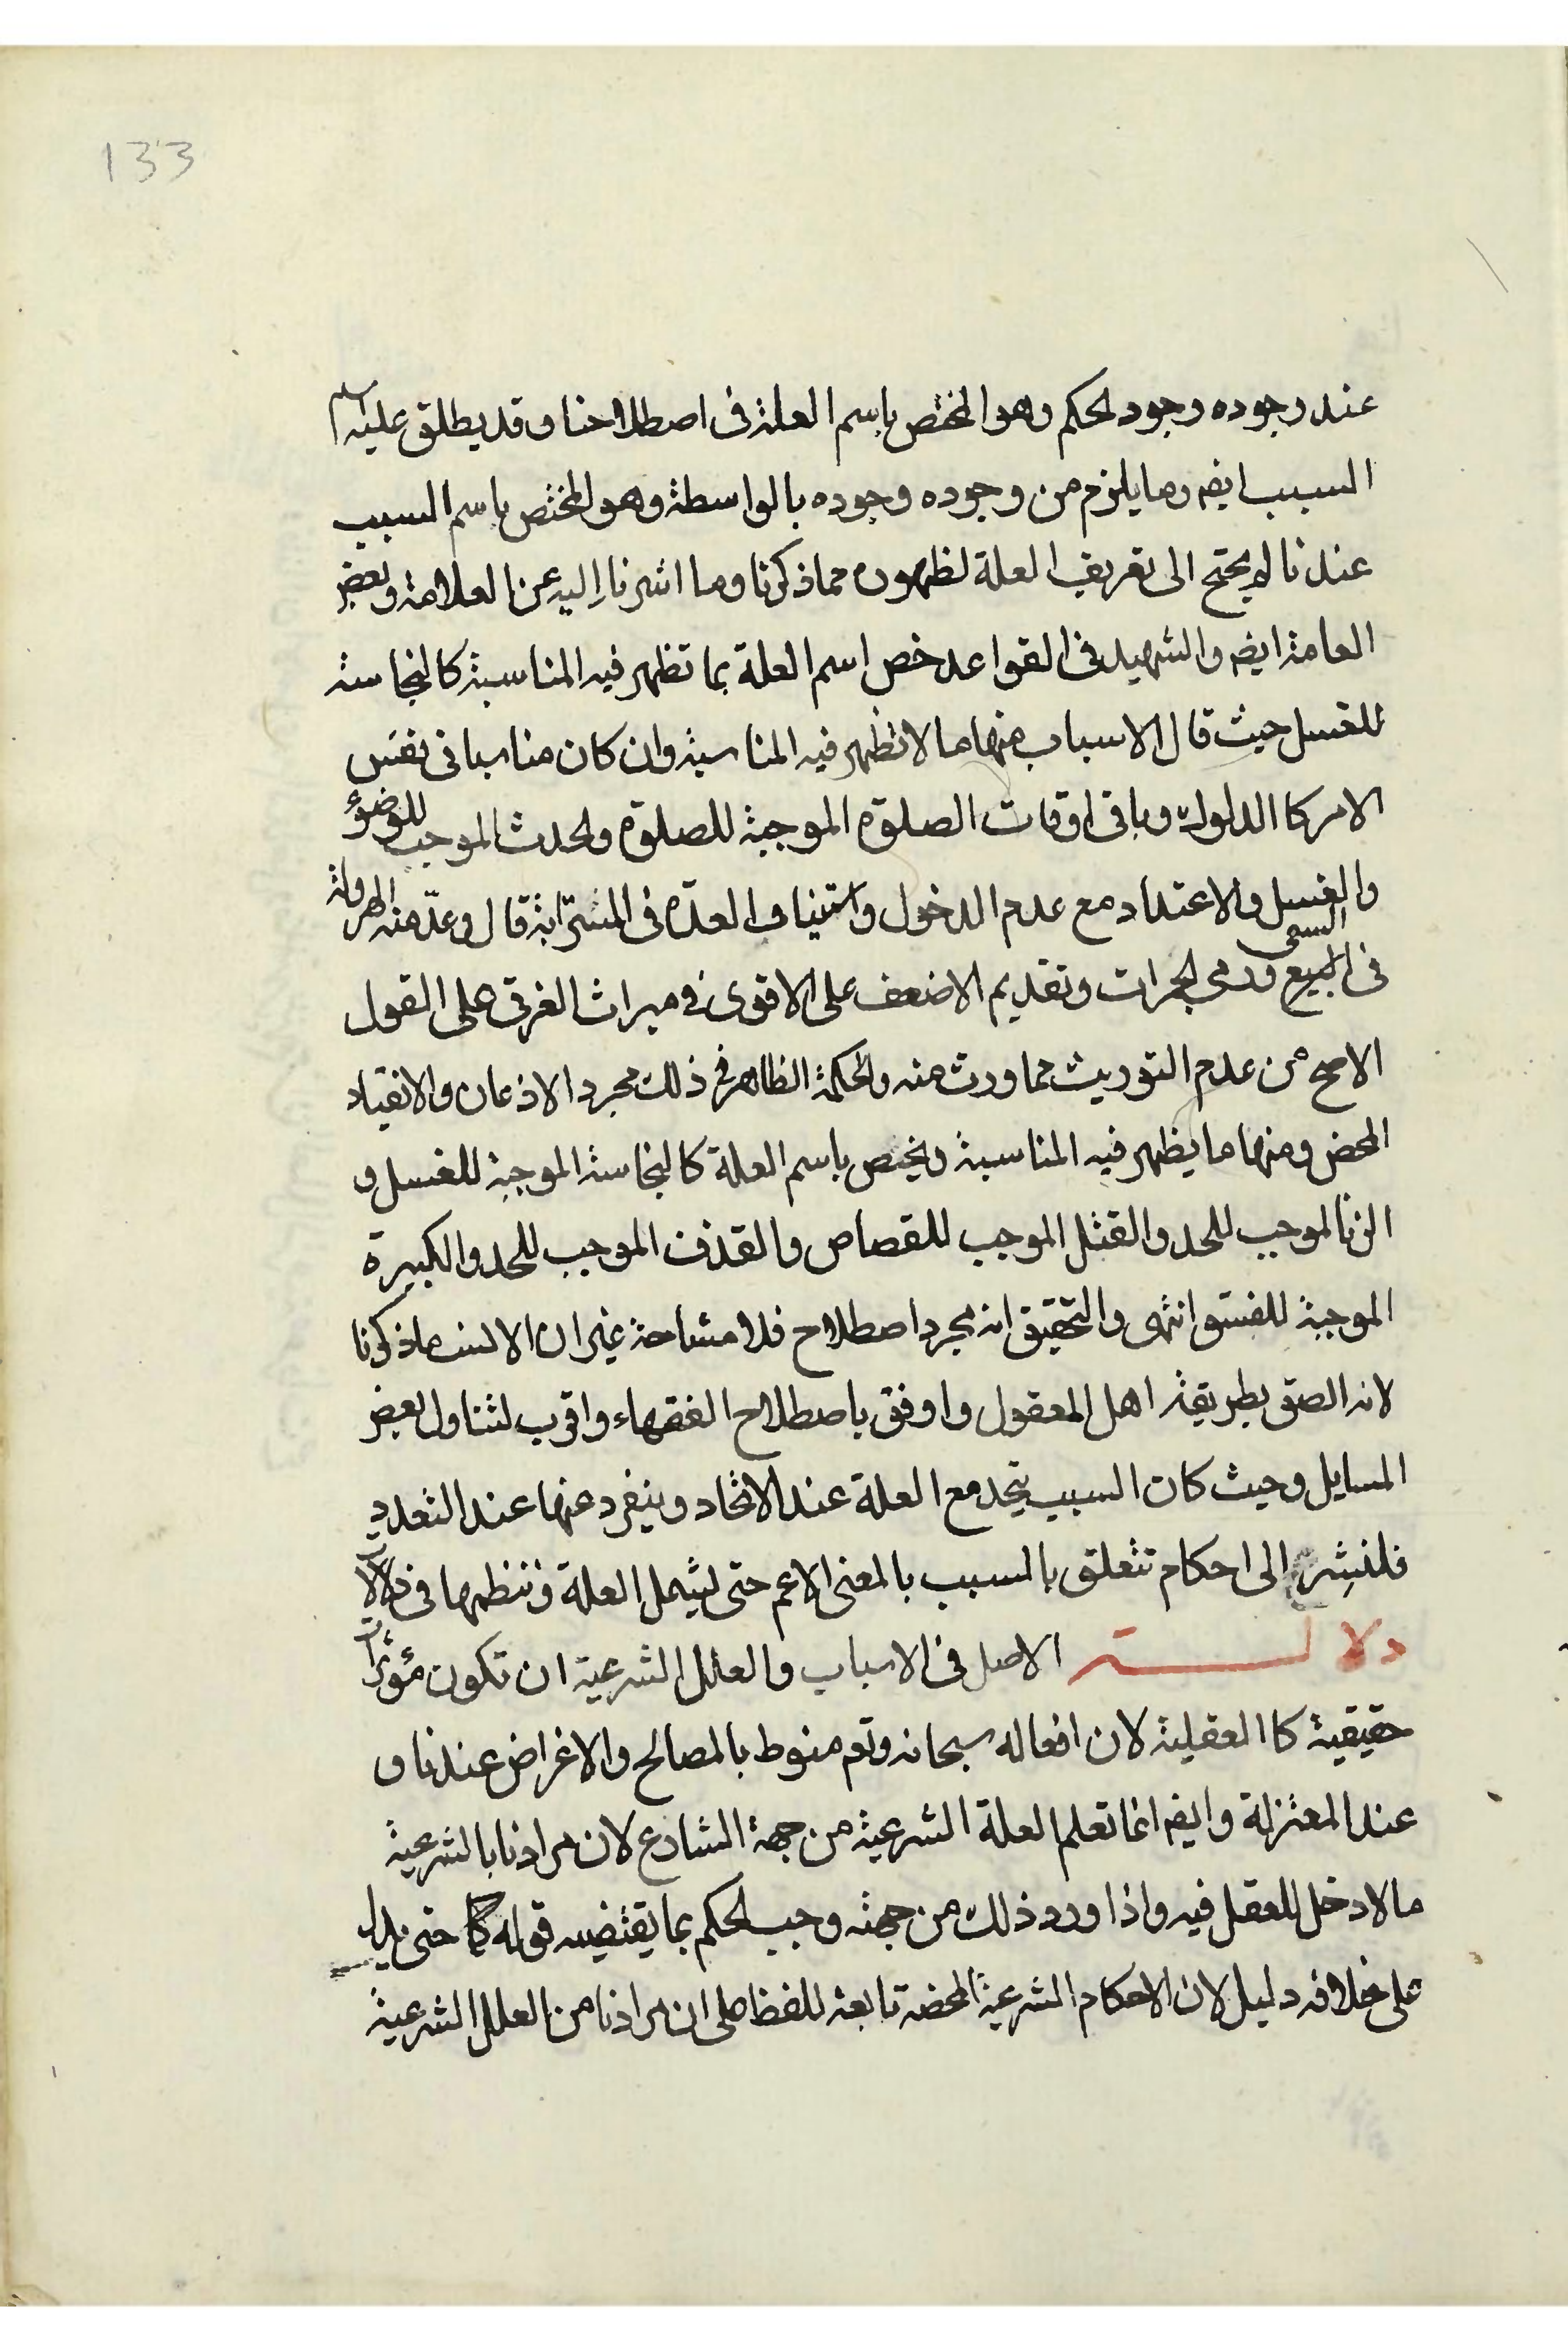 133
عند وجوده وجود الحكم وهو المختص باسم العلة فى اصطلاحنا وقد يطلق عليه اسم
السبب ايضه وما يلزم من وجوده وجوده بالواسطة وهو المختص باسم السبب
عندنا لم يحتج الى تعريف العلة لظهوره مما ذكرنا وما اشرنا إليه عن العلامة وبعض
العامة ايضه والشهيد فى القواعد خص اسم العلة بما تظهر فيه المناسبة كالنجاسة
للغسل حيث قال الاسباب منها ما لا تظهر فيه المناسبة وان كان مناسبا فى نفس
الامر كا الدلوك وباقى اوقات الصلوة الموجبة للصلوة والحدث الموجب للوضوء
والغسل والاعتداد مع عدم الدخول واستيناف العدّة فى المسترابة قال وعدّ منه الهرولة
فى السعى ورمى الجمرات وتقديم الاضعف على الاقوى فى ميراث الغرقى على القول
الاصح من عدم التوريث مما ورث منه والحكمة الظاهرة فى ذلك مجرد الاذعان والانقياد
المحض ومنها ما يظهر فيه المناسبة ويختص باسم العلة كالنجاسة الموجبة للغسل و
الزنا الموجب للحد والقتل الموجب للقصاص والقذف الموجب للحد والكبيرة
الموجبة للفسق انتهى والتحقيق انه مجرد اصطلاح فلا مشاحة غير ان الانسب ما ذكرنا
لانه الصق بطريقة اهل المعقول واوفق باصطلاح الفقهاء واقرب لتناول بعض
المسايل وحيث كان السبب يتحد مع العلة عند الاتحاد وينفرد عنها عند التعدد
فلنشر الى احكام تتعلق بالسبب بالمعنى الاعم حتى يشمل العلة وننظمها فى دلالات
دلالة الاصل فى الاسباب والعلل الشرعية ان تكون مؤثرات
حقيقية كا العقلية لان افعاله سبحانه وتعم منوط بالمصالح والاغراض عندنا و
عند المعتزلة وايضه انما تعلم العلة الشرعية من جهة الشارع لان مرادنا بالشرعية
ما لا دخل للعقل فيه واذا ورد ذلك من جهته وجب الحكم بما يقتضيه قوله حتى يدل
على خلافه دليل لان الاحكام الشرعية المحضه تابعة للفظ على ان مرادنا من العلل الشرعية